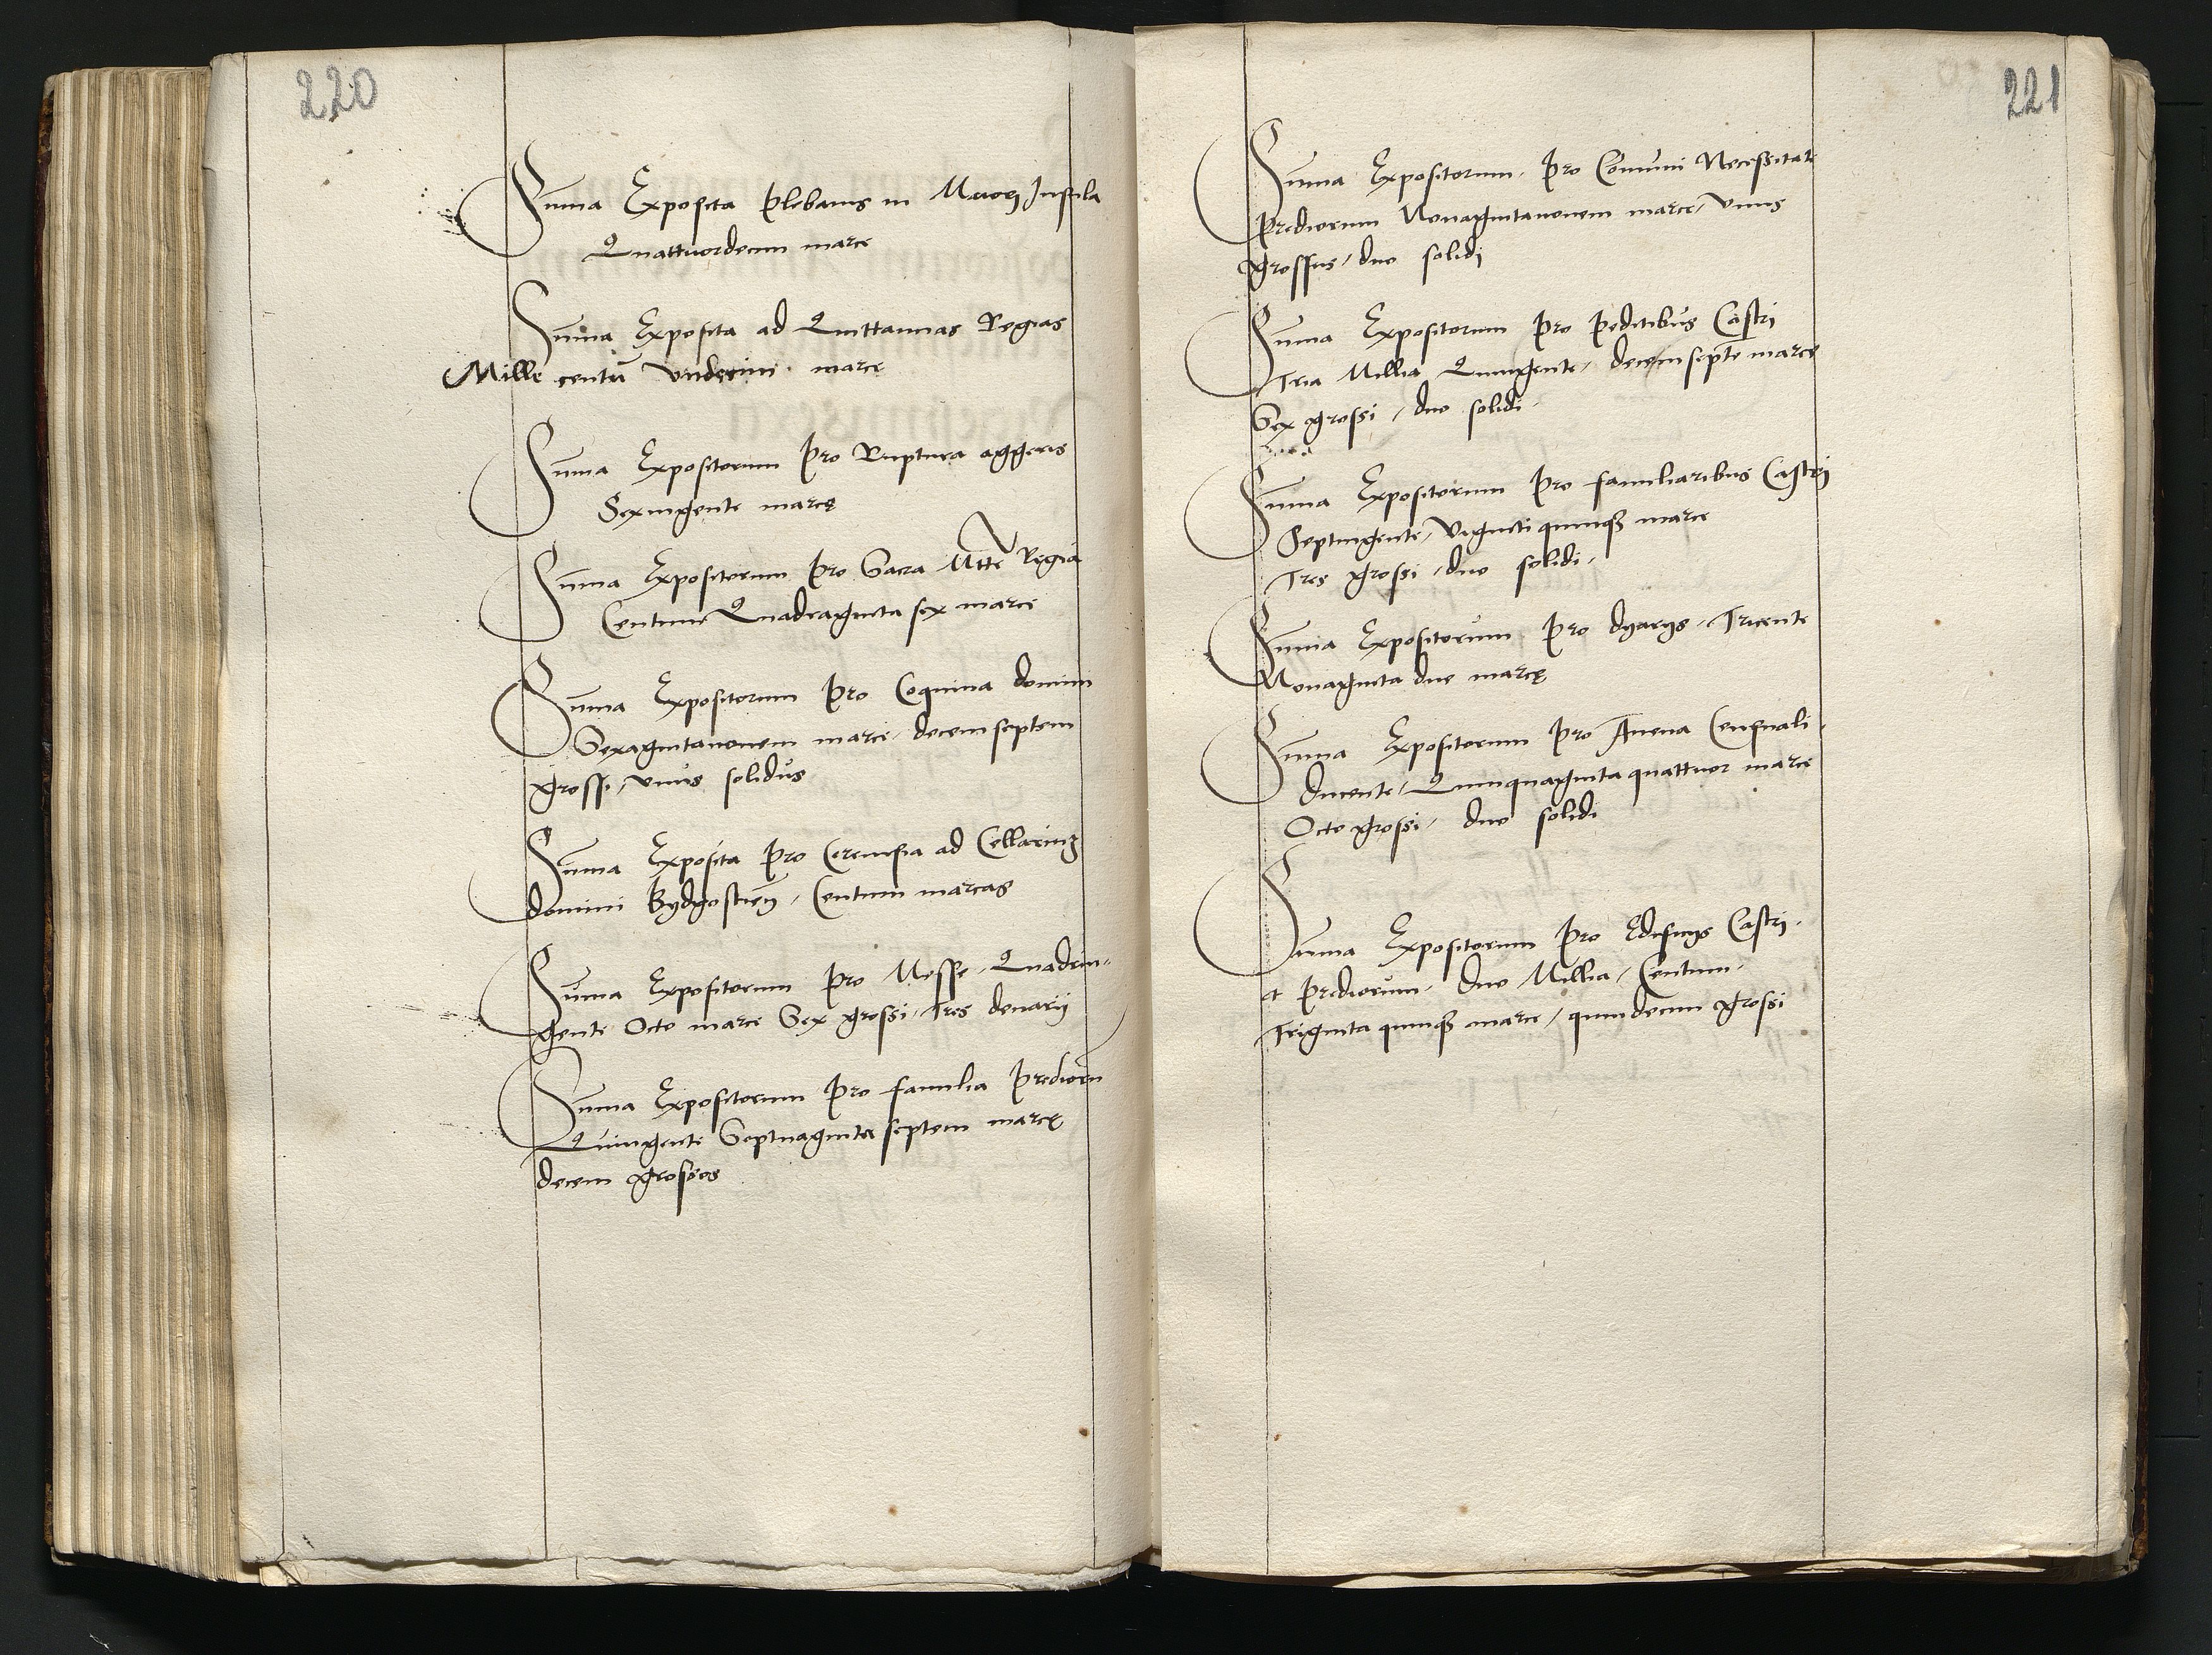 220
Sūma Exposita plebanis in Maiori Insula
Quattuordecim marce
Sūma Exposita ad Quittantias Regias
Mille centū Vndecim marce
Sūma Expositorum pro Ruptura aggeris
Sexingente marcę
Sūma Expositorum pro Sacra Mtte Regia
Centum Quadraginta sex marce
Sūma Expositorum pro Coquina domini
Sexagintanouem marce, decem septem
grossi, vnus solidus
Sūma Exposita pro Cereuisia ad Cellariū
domini Bydgostien̄, Centum marcas
Sūma Expositorum pro Messe, Quadrin-
gente Octo marce Sex grossi, Tres denarij
Sūma Expositorum pro familia prediorū
Quingente Septuaginta septem marcę
decem grossos
221
Sūma Expositorum pro Comuni Necessitate
prediorum Nonagintanouem marce, vnus
grossus, duo solidi
Sūma Expositorum pro peditibus Castri
Tria Millia Quingente, decemsepte marce
Sex grossi, duo solidi
Sūma Expositorum pro familiaribus Castri
Septingente, viginti quinqȝ marce
Tres grossi, duo solidi,
Sūma Expositorum pro dyarijs, Tricente
Nonaginta due marcę
Sūma Expositorum pro Auena Censuali,
ducente, Quinquaginta quattuor marce
Octo grossi, duo solidi
Sūma Expositorum pro Edificijs Castri,
et prediorum, duo Millia, Centum,
Triginta quinqȝ marce, quindecim grossi